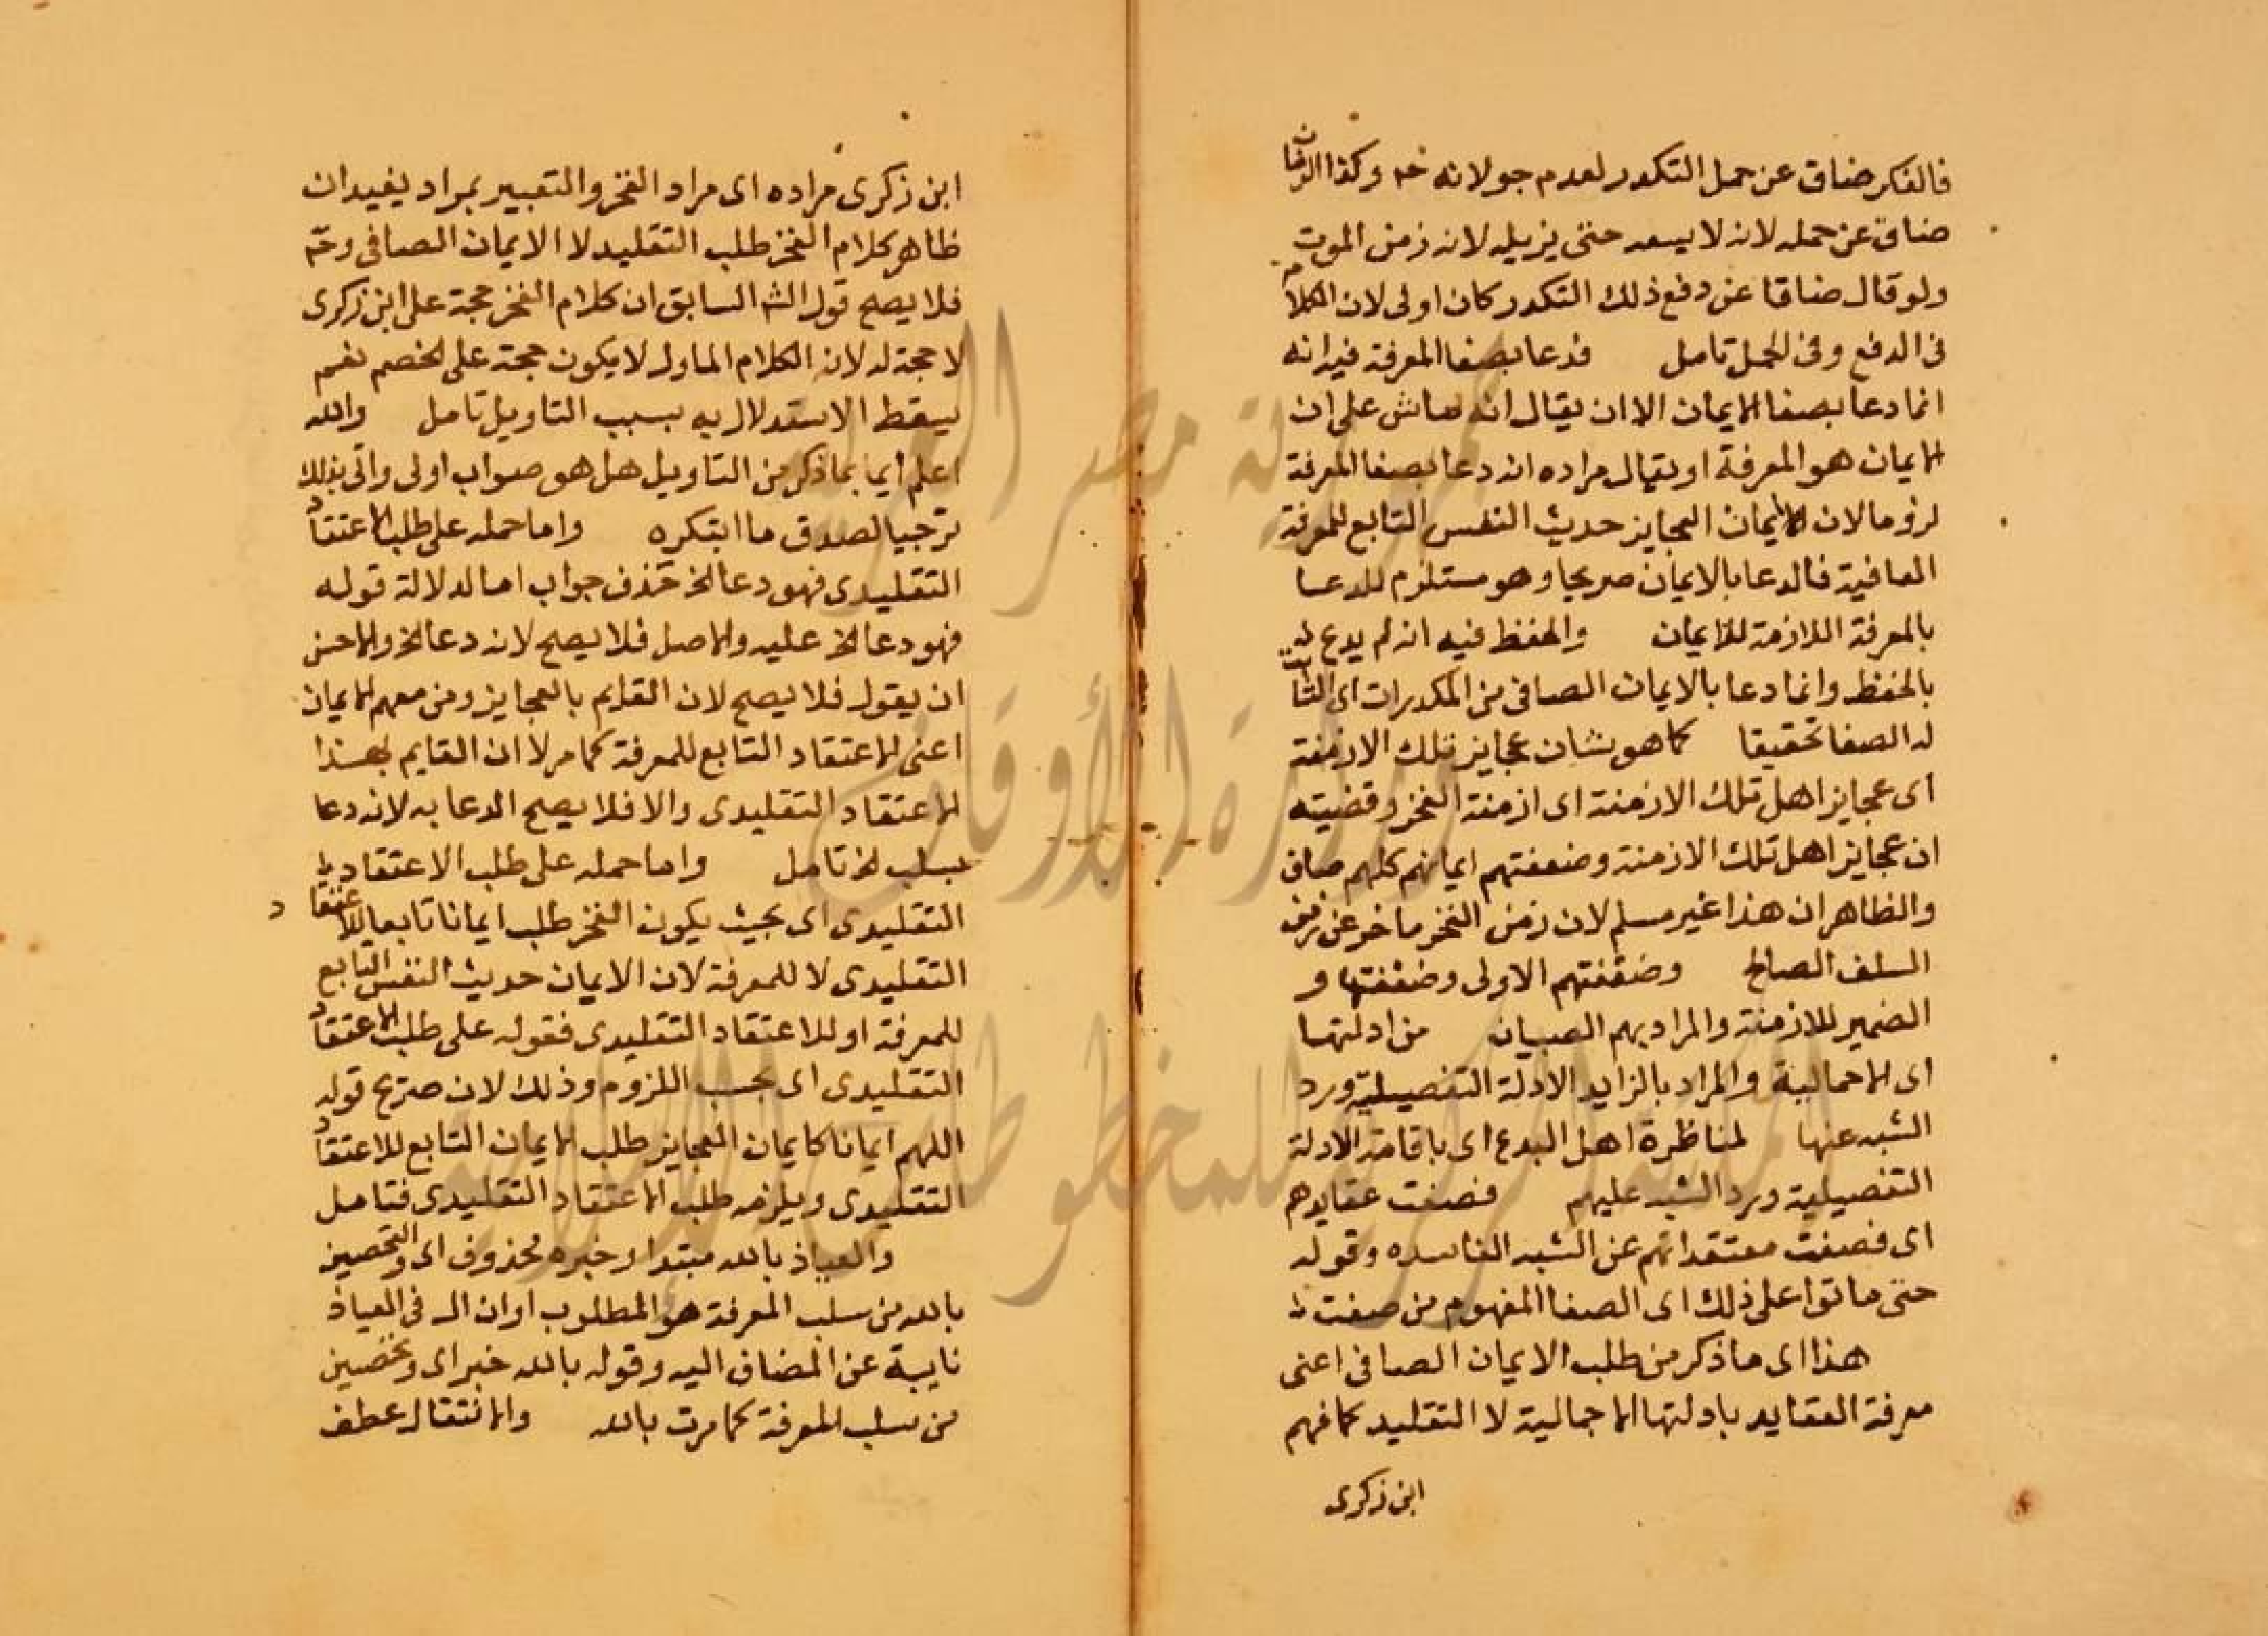 فالفكر ضاق عن حمل التكدر لعدم جولانه ح وكذا الزمان
ضاق عن حمله لانه لا يسعه حتى يزيله لانه زمن الموت
ولو قال ضاقا عن دفع ذلك التكدر كان اولى لان الكلام
فى الدفع وفى الحمل تامل فدعا بصفا المعرفة فيه انه
انما دعا بصفا الايمان الا ان يقال انه ماش على ان
الايمان هو المعرفة او يقال مراده انه دعا بصفا المعرفة
لزوما لان الايمان العجايز حديث النفس التابع للمعرفة
الصافية فالدعا بالايمان صريحا وهو مستلزم للدعا
بالمعرفة اللازمة للايمان والحفظ فيه انه لم يدع له
بالحفظ وانما دعا بالايمان الصافى من المكدرات اى الثابت
له الصفا تحقيقا كما هو شان عجايز تلك الازمنة
اى عجايز اهل تلك الازمنة اى ازمنة الفخر وقضيته
ان عجايز اهل تلك الازمنة وضعفتهم ايمانهم كلهم صاف
والظاهر ان هذا غير مسلم لان زمن الفخر ماخر عن زمن
السلف الصالح وضعفتهم الاولى وضعفتها و
الضمير للازمنة والمراد بهم الصبيان من ادلتها
اى الاجمالية والمراد بالزايد الادلة التفصيلية ورد
الشبه عنها لمناظرة اهل البدع اى باقامة الادلة
التفصيلية ورد الشبه عليهم فصفت عقايدهم
اى فصفت معتقداتهم عن الشبه الفاسده وقوله
حتى ماتوا على ذلك اى الصفا المفهوم من صفت ط
هذا اى ما ذكر من طلب الايمان الصافى اعنى
معرفة العقايد بادلتها الاجمالية لا التقليد كما فهم
ابن زكرى
ابن زكرى مراده اى مراد الفخر والتعبير بمراد يفيد ان
ظاهر كلام الفخر طلب التقليد لا الايمان الصافى وح
فلا يصح قول الش السابق ان كلام الفخر حجة على ابن زكرى
لا حجة له لان الكلام الماول لا يكون حجة على الخصم نعم
يسقط الاستدلال به بسبب التاويل تامل والله
اعلم ايما بما ذكر من التاويل هل هو صواب اولى واتى بذلك
ترجيا لصدق ما ابتكره واما حمله على طلب الاعتقاد
التقليدى فهو دعا الخ حذف جواب اما لدلالة قوله
فهو دعا الخ عليه والاصل فلا يصح لانه دعا الخ والاحسن
ان يقول فلا يصح لان القايم بالعجايز ومن معهم الايمان
اعنى الاعتقاد التابع للمعرفة كما مر لا ان القايم بهذا
الاعتقاد التقليدى والا فلا يصح الدعا به لانه دعا
بسلب الخ تامل واما حمله على طلب الاعتقاد ط
التقليدى اى بحيث يكون الفخر طلب ايمانا تابعا للاعتقاد
التقليدى لا للمعرفة لان الايمان حديث النفس التابع
للمعرفة او للاعتقاد التقليدى فقوله على طلب الاعتقاد
التقليدى اى بحسب اللزوم وذلك لان صريح قوله
اللهم ايمانا كايمان العجايز طلب الايمان التابع للاعتقاد
التقليدى ويلزمه طلب الاعتقاد التقليدى فتامل
والعياذ بالله مبتدا وخبره محذوف اى والتحصين
بالله من سلب المعرفة هو المطلوب او ان ال فى العياذ
نايبة عن المضاف اليه وقوله بالله خبر اى وتحصين
من سلب المعرفة كما مرت بالله والانتقال عطف